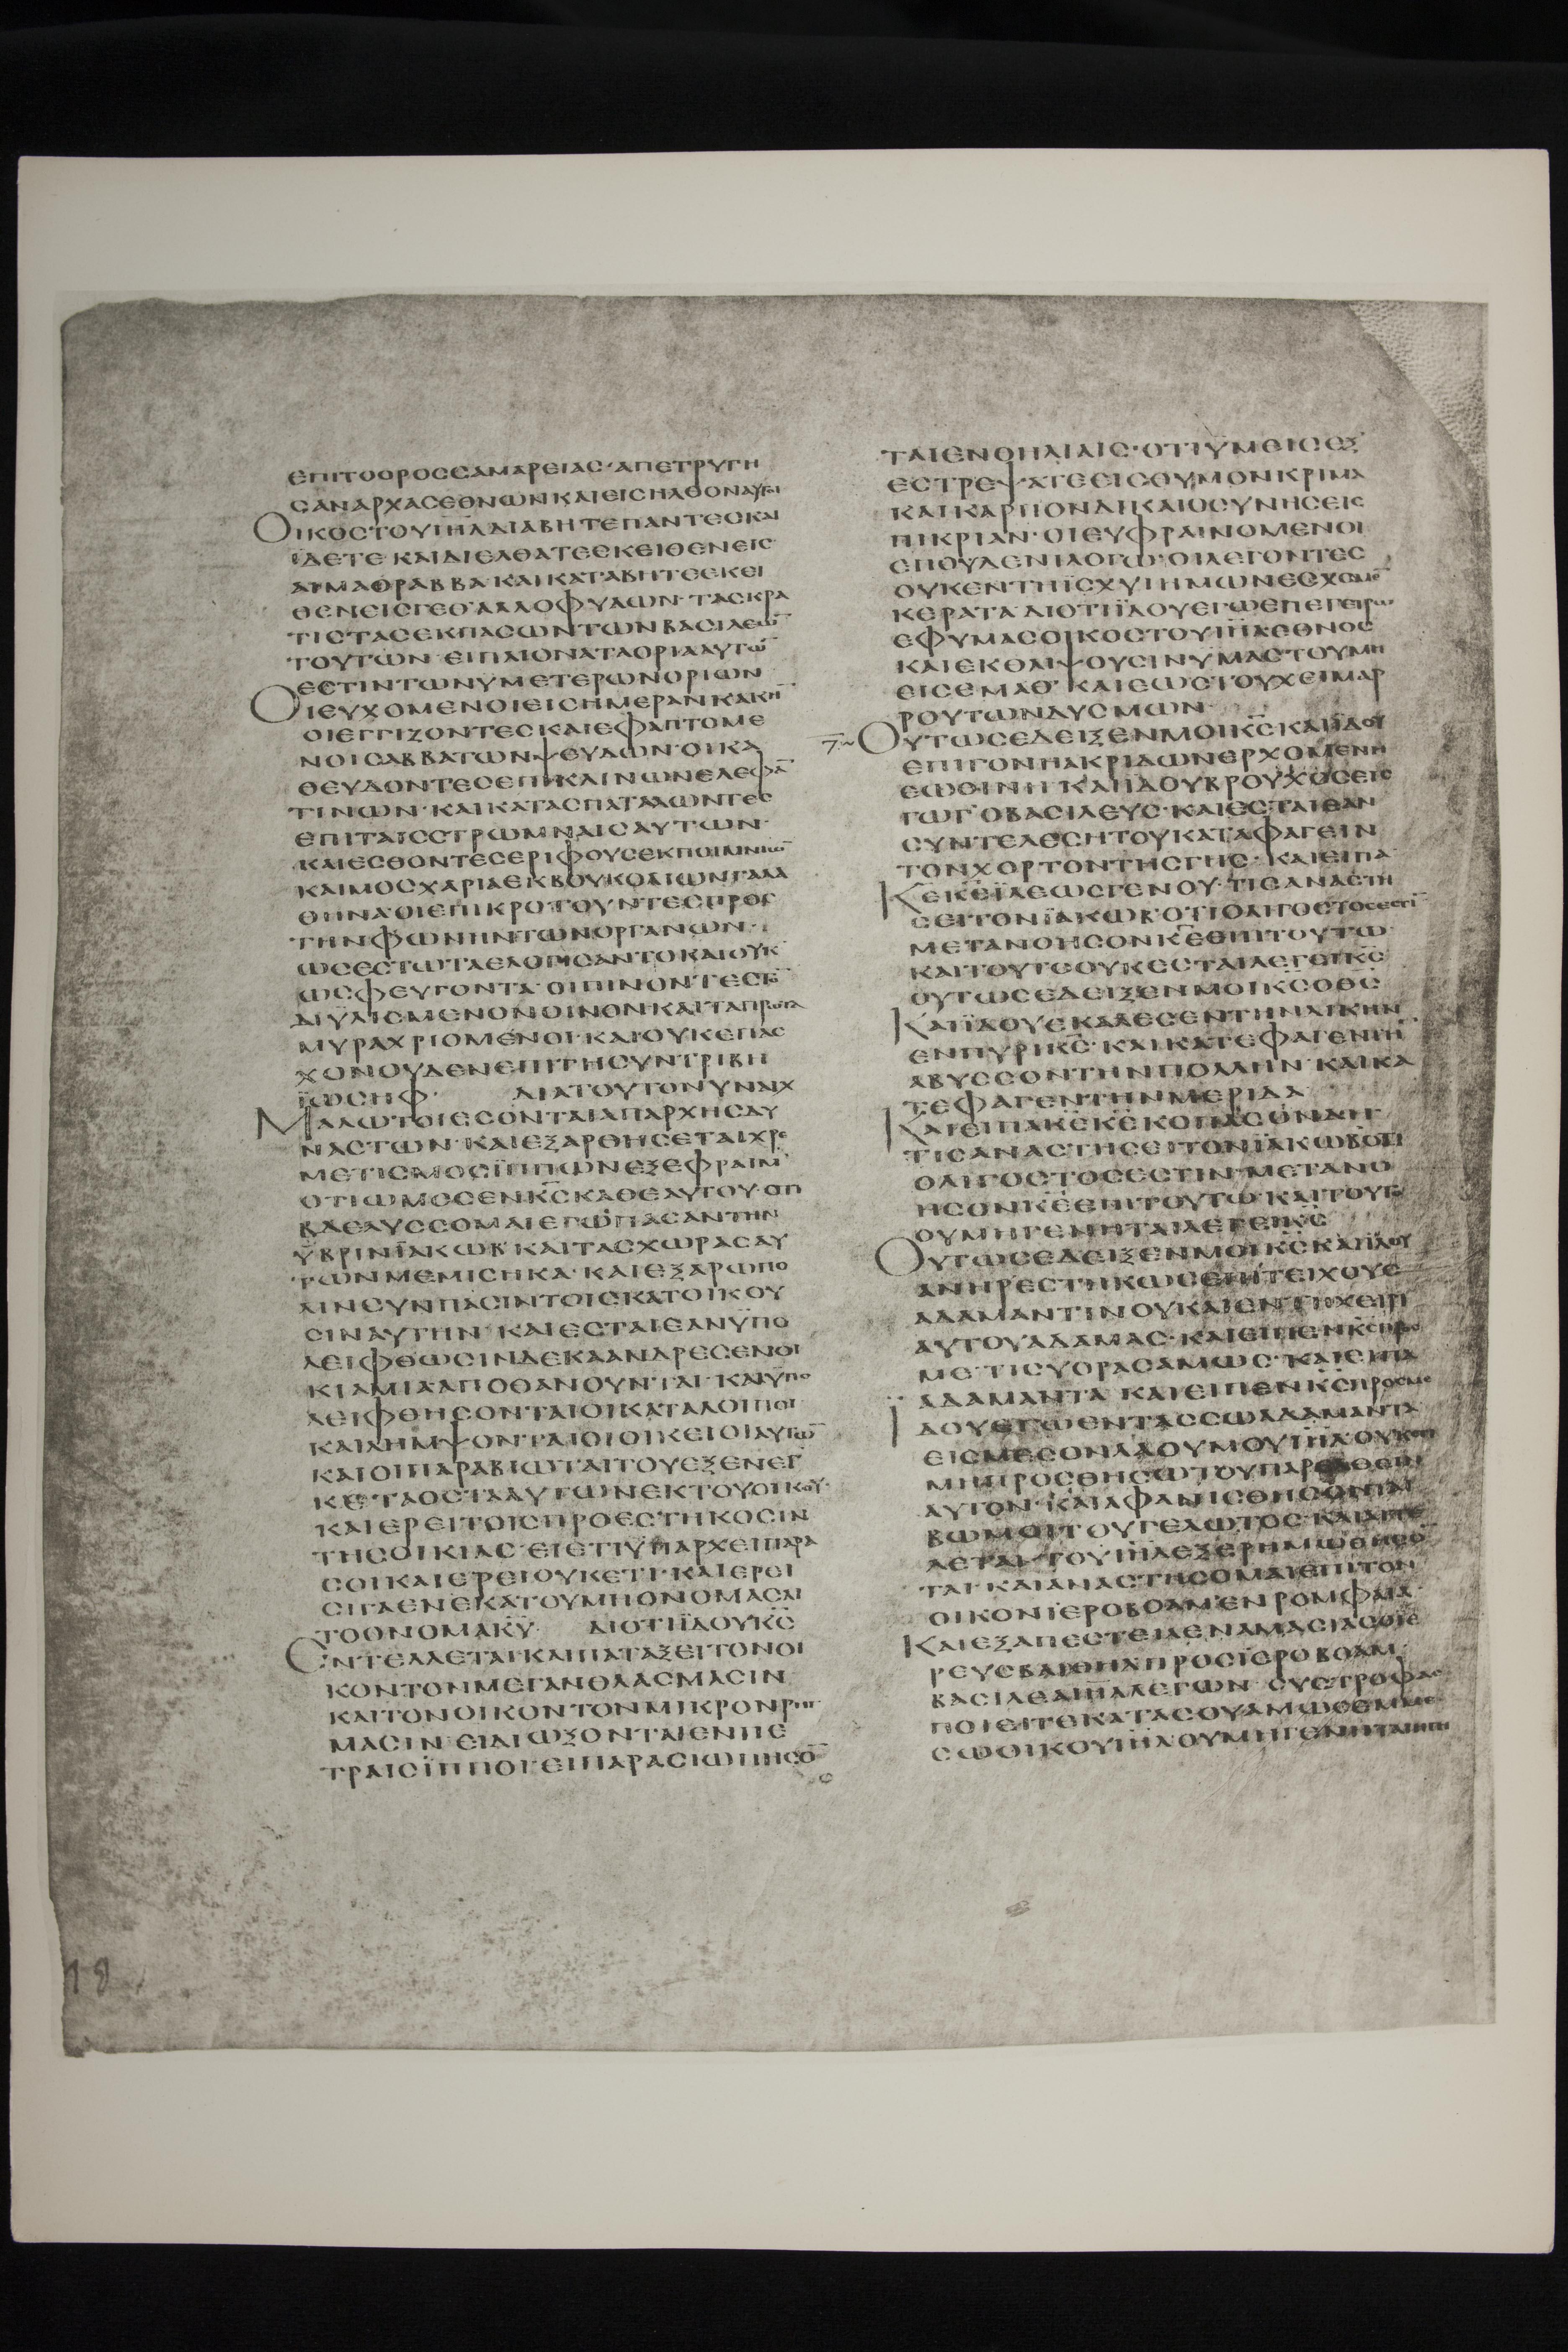 ΕΠΙΤΟΟΡΟCCΑΜΑΡΕΙΑC·ΑΠΕΤΡΥΓΗ
CΑΝΑΡΧΑCΕΘΝΩΝΚΑΙΕΙCΗΛΘΟΝΑΥΤΟΙ
ΟΙΚΟCΤΟΥΙΗΛΔΙΑΒΗΤΕΠΑΝΤΕCΚΑΙ
ΪΔΕΤΕ·ΚΑΙΔΙΕΛΘΑΤΕΕΚΕΙΘΕΝΕΙC
ΑΙΜΑΘΡΑΒΒΑ·ΚΑΙΚΑΤΑΒΗΤΕΕΚΕΙ
ΘΕΝΕΙCΓΕΘ·ΑΛΛΟΦΥΛΩΝ·ΤΑCΚΡΑ
ΤΙCΤΑCΕΚΠΑCΩΝΤΩΝΒΑCΙΛΕΙΩ̅
ΤΟΥΤΩΝ·ΕΙΠΛΙΟΝΑΤΑΟΡΙΑΑΥΤΩ̅
ΕCΤΙΝΤΩΝΥΜΕΤΕΡΩΝΟΡΙΩΝ
ΟΙΕΥΧΟΜΕΝΟΙΕΙCΗΜΕΡΑΝΚΑΚΗ̅
ΟΙΕΓΓΙΖΟΝΤΕCΚΑΙΕΦΑΠΤΟΜΕ
ΝΟΙCΑΒΒΑΤΩΝΨΕΥΔΩΝ·ΟΙΚΑ
ΘΕΥΔΟΝΤΕCΕΠΙΚΛΙΝΩΝΕΛΕΦΑ̅
ΤΙΝΩΝ·ΚΑΙΚΑΤΑCΠΑΤΑΛΩΝΤΕC
ΕΠΙΤΑΙCCΤΡΩΜΝΑΙCΑΥΤΩΝ·
ΚΑΙΕCΘΟΝΤΕCΕΡΙΦΟΥCΕΚΠΟΙΜΝΙΩ̅
ΚΑΙΜΟCΧΑΡΙΑΕΚΒΟΥΚΟΛΙΩΝΓΑΛΑ
ΘΗΝΑ·ΟΙΕΠΙΚΡΟΤΟΥΝΤΕCΠΡΟC
ΤΗΝΦΩΝΗΝΤΩΝΟΡΓΑΝΩΝ·
ΩCΕCΤΩΤΑΕΛΟΓΙCΑΝΤΟΚΑΙΟΥΚ
ΩCΦΕΥΓΟΝΤΑ·ΟΙΠΙΝΟΝΤΕCΤΟ̅
ΔΙΥΛΙCΜΕΝΟΝΟΙΝΟΝΚΑΙΤΑΠΡΩΤΑ
ΜΥΡΑΧΡΙΟΜΕΝΟΙ·ΚΑΙΟΥΚΕΠΑC
ΧΟΝΟΥΔΕΝΕΠΙΤΗCΥΝΤΡΙΒΗ
ΪΩCΗΦ· ΔΙΑΤΟΥΤΟΝΥΝΑΙΧ
ΜΑΛΩΤΟΙΕCΟΝΤΑΙΑΠΑΡΧΗCΔΥ
ΝΑCΤΩΝ·ΚΑΙΕΞΑΡΘΗCΕΤΑΙΧΡΕ
ΜΕΤΙCΜΟCΪΠΠΩΝΕΞΕΦΡΑΙΜ·
ΟΤΙΩΜΟCΕΝΚ̅C̅ΚΑΘΕΑΥΤΟΥ·ΟΤΙ
ΒΔΕΛΥCCΟΜΑΙΕΓΩΠΑCΑΝΤΗΝ
ΫΒΡΙΝΪΑΚΩΒ·ΚΑΙΤΑCΧΩΡΑCΑΥ
ΤΩΝΜΕΜΙCΗΚΑ·ΚΑΙΕΞΑΡΩΠΟ
ΛΙΝCΥΝΠΑCΙΝΤΟΙCΚΑΤΟΙΚΟΥ
CΙΝΑΥΤΗΝ·ΚΑΙΕCΤΑΙΕΑΝΫΠΟ
ΛΕΙΦΘΩCΙΝΔΕΚΑΑΝΔΡΕCΕΝΟΙ
ΚΙΑΜΙΑΑΠΟΘΑΝΟΥΝΤΑΙ·ΚΑΙΫΠΟ
ΛΕΙΦΘΗCΟΝΤΑΙΟΙΚΑΤΑΛΟΙΠΟΙ
ΚΑΙΛΗΜΨΟΝΤΑΙΟΙΟΙΚΕΙΟΙΑΥΤΩ̅
ΚΑΙΟΙΠΑΡΑΒΙΩΤΑΙΤΟΥΕΞΕΝΕΓ
ΚΕ·ΤΑΟCΤΑΑΥΤΩΝΕΚΤΟΥΟΙΚΟΥ·
ΚΑΙΕΡΕΙΤΟΙCΠΡΟΕCΤΗΚΟCΙΝ
ΤΗCΟΙΚΙΑC·ΕΙΕΤΙΫΠΑΡΧΕΙΠΑΡΑ
CΟΙΚΑΙΕΡΕΙΟΥΚΕΤΙ·ΚΑΙΕΡΕΙ
CΙΓΑΕΝΕΚΑΤΟΥΜΗΟΝΟΜΑCΑΙ
ΤΟΟΝΟΜΑΚ̅Υ̅· ΔΙΟΤΙΪΔΟΥΚ̅C̅
ΕΝΤΕΛΛΕΤΑΙ·ΚΑΙΠΑΤΑΞΕΙΤΟΝΟΙ
ΚΟΝΤΟΝΜΕΓΑΝΘΛΑCΜΑCΙΝ
ΚΑΙΤΟΝΟΙΚΟΝΤΟΝΜΙΚΡΟΝΡΑΓ
ΜΑCΙΝ·ΕΙΔΙΩΞΟΝΤΑΙΕΝΠΕ
ΤΡΑΙCΪΠΠΟΙ·ΕΙΠΑΡΑCΙΩΠΗCΟ̅
ΤΑΙΕΝΘΗΛΙΑΙC·ΟΤΙΫΜΕΙCΕΞ
ΕCΤΡΕΨΑΤΕΕΙCΘΥΜΟΝΚΡΙΜΑ
ΚΑΙΚΑΡΠΟΝΔΙΚΑΙΟCΥΝΗCΕΙC
ΠΙΚΡΙΑΝ·ΟΙΕΥΦΡΑΙΝΟΜΕΝΟΙ
ΕΠΟΥΔΕΝΙΛΟΓΩ·ΟΙΛΕΓΟΝΤΕC
ΟΥΚΕΝΤΗΪCΧΥΙΗΜΩΝΕCΧΟΜΕ̅
ΚΕΡΑΤΑ·ΔΙΟΤΙΪΔΟΥΕΓΩΕΠΕΓΕΙΡΩ
ΕΦΥΜΑCΟΙΚΟCΤΟΥΙΗΛΕΘΝΟC
ΚΑΙΕΚΘΛΙΨΟΥCΙΝΥΜΑCΤΟΥΜΗ
ΕΙCΕΜΑΘ·ΚΑΙΕΩCΤΟΥΧΕΙΜΑΡ
ΡΟΥΤΩΝΔΥCΜΩΝ·
ΟΥΤΩCΕΔΕΙΞΕΝΜΟΙΚ̅C̅ΚΑΙΪΔΟΥ
ΕΠΙΓΟΝΗΑΚΡΙΔΩΝΕΡΧΟΜΕΝΗ
ΕΩΘΙΝΗ·ΚΑΙΪΔΟΥΒΡΟΥΧΟCΕΙC
ΓΩΓ·ΟΒΑCΙΛΕΥC·ΚΑΙΕCΤΑΙΕΑΝ
CΥΝΤΕΛΕCΗΤΟΥΚΑΤΑΦΑΓΕΙΝ
ΤΟΝΧΟΡΤΟΝΤΗCΓΗC·ΚΑΙΕΙΠΑ
Κ̅Ε̅Κ̅Ε̅ΪΛΕΩCΓΕΝΟΥ·ΤΙCΑΝΑCΤΗ
CΕΙΤΟΝΪΑΚΩΒ·ΟΤΙΟΛΙΓΟCΤΟCΕCΤΙ̅
ΜΕΤΑΝΟΗCΟΝΚ̅Ε̅ΕΠΙΤΟΥΤΩ·
ΚΑΙΤΟΥΤΟΟΥΚΕCΤΑΙΛΕΓΕΙΚ̅C̅
ΟΥΤΩCΕΔΕΙΞΕΝΜΟΙΚ̅C̅Ο̅Θ̅C̅
ΚΑΙΪΔΟΥΕΚΑΛΕCΕΝΤΗΝΔΙΚΗΝ
ΕΝΠΥΡΙΚ̅C̅·ΚΑΙΚΑΤΕΦΑΓΕΝΤΗ̅
ΑΒΥCCΟΝΤΗΝΠΟΛΛΗΝ·ΚΑΙΚΑ
ΤΕΦΑΓΕΝΤΗΝΜΕΡΙΔΑ·
ΚΑΙΕΙΠΑΚ̅Ε̅Κ̅Ε̅ΚΟΠΑCΟΝΔΗ
ΤΙCΑΝΑCΤΗCΕΙΤΟΝΪΑΚΩΒΟΤΙ
ΟΛΙΓΟCΤΟCΕCΤΙΝ·ΜΕΤΑΝΟ
ΗCΟΝΚ̅Ε̅ΕΠΙΤΟΥΤΩ·ΚΑΙΤΟΥΤΟ
ΟΥΜΗΓΕΝΗΤΑΙΛΕΓΕΙΚ̅C̅
ΟΥΤΩCΕΔΕΙΞΕΝΜΟΙΚ̅C̅ΚΑΙΪΔΟΥ
ΑΝΗΡΕCΤΗΚΩCΕΠΙΤΕΙΧΟΥC
ΑΔΑΜΑΝΤΙΝΟΥΚΑΙΕΝΤΗΧΕΙΡΙ
ΑΥΤΟΥΑΔΑΜΑC·ΚΑΙΕΙΠΕΝΚ̅C̅ΠΡΟC
ΜΕ·ΤΙCΥΟΡΑCΑΜΩC·ΚΑΙΕΙΠΑ
ΑΔΑΜΑΝΤΑ·ΚΑΙΕΙΠΕΝΚ̅C̅ΠΡΟCΜΕ
ΪΔΟΥΕΓΩΕΝΤΑCCΩΑΔΑΜΑΝΤΑ
ΕΙCΜΕCΟΝΛΑΟΥΜΟΥΙΗΛΟΥΚΕΤΙ
ΜΗΠΡΟCΘΗCΩΤΟΥΠΑΡΕΛΘΕΙΝ
ΑΥΤΟΝ·ΚΑΙΑΦΑΝΙCΘΗCΟΝΤΑΙ
ΒΩΜΟΙΤΟΥΓΕΛΩΤΟC·ΚΑΙΑΙΤΕ
ΛΕΤΑΙ·ΤΟΥΙΗΛΕΞΕΡΗΜΩΘΗCΟ̅
ΤΑΙ·ΚΑΙΑΝΑCΤΗCΟΜΑΙΕΠΙΤΟΝ
ΟΙΚΟΝΪΕΡΟΒΟΑΜΕΝΡΟΜΦΑΙΑ·
ΚΑΙΕΞΑΠΕCΤΕΙΛΕΝΑΜΑCΙΑCΟΪΕ
ΡΕΥCΒΑΙΘΗΛΠΡΟCΪΕΡΟΒΟΑΜ
ΒΑCΙΛΕΑΙΗΛΛΕΓΩΝ·CΥCΤΡΟΦΑC
ΠΟΙΕΙΤΕΚΑΤΑCΟΥΑΜΩCΕΜΜΕ
CΩΟΙΚΟΥΙΗΛΟΥΜΗΓΕΝΗΤΑΙ
18